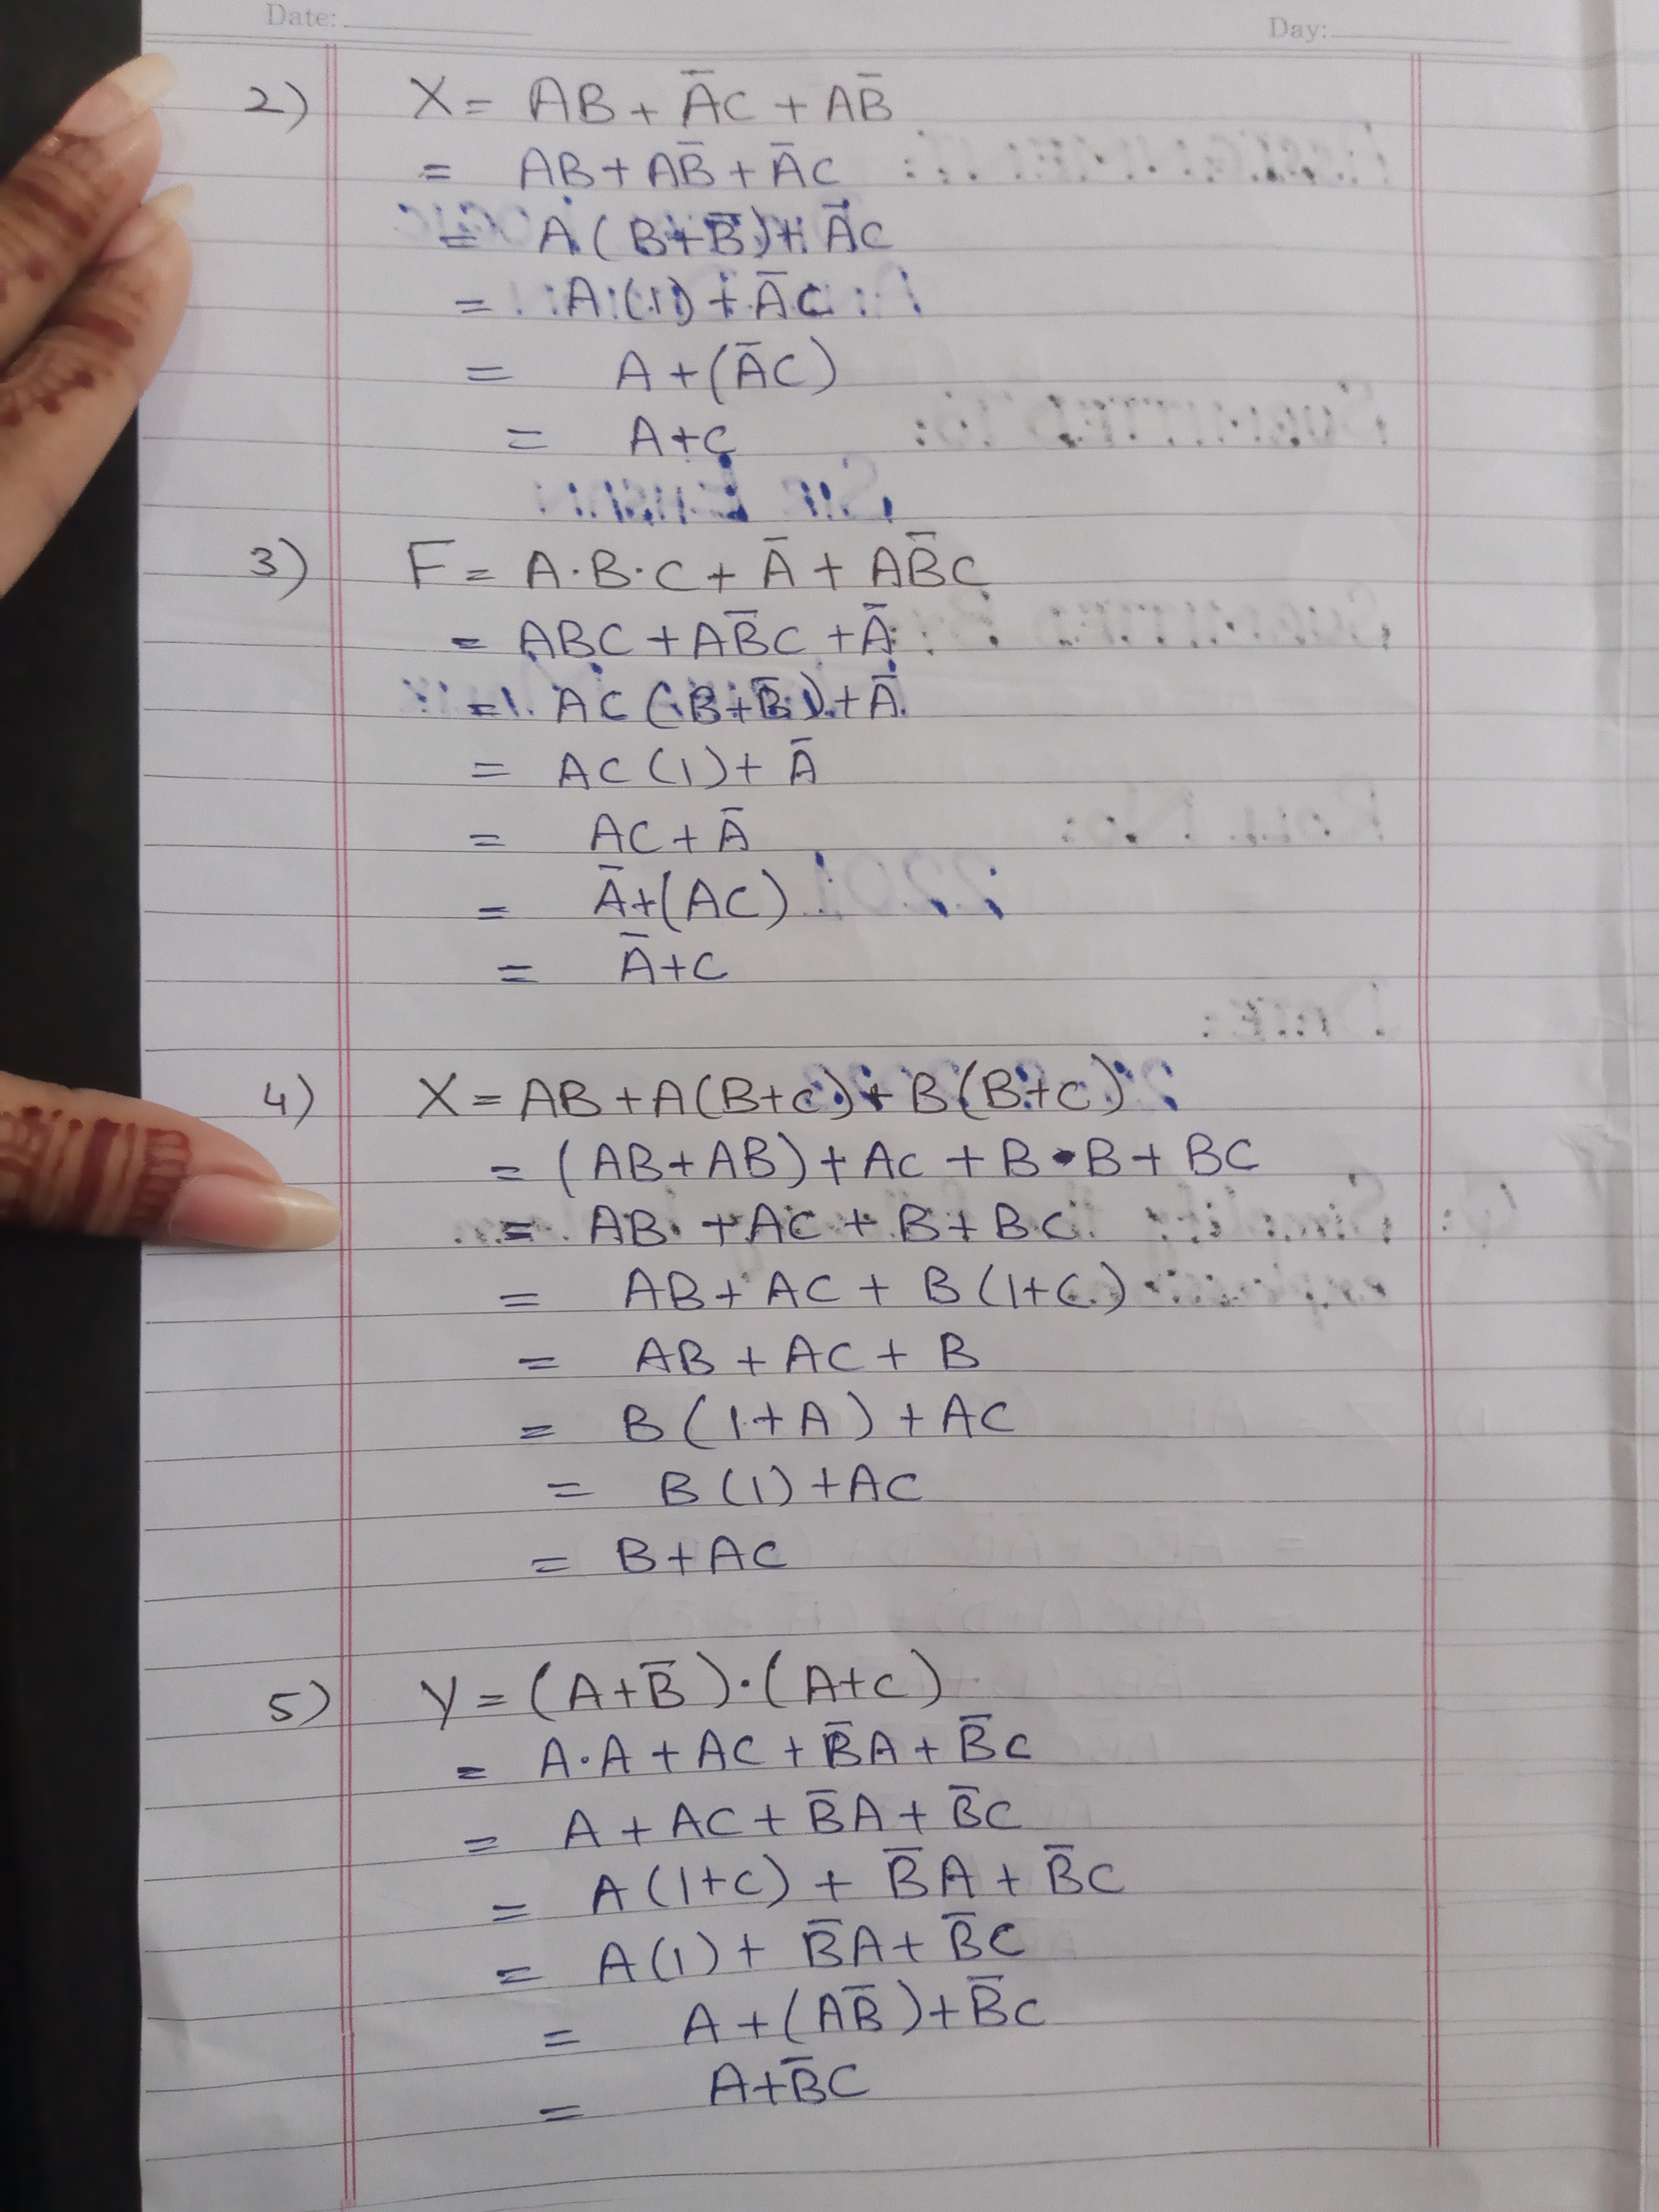 Date:
Day:
2) X = AB + A̅C + AB̅
= AB + AB̅ + A̅C
= A(B+B̅) + A̅C
= A(1) + A̅C
= A + (A̅C)
= A+C
3) F = A·B·C + A̅ + AB̅C
= ABC + AB̅C + A̅
= AC(B+B̅) + A̅
= AC(1) + A̅
= AC + A̅
= A̅+(AC)
= A̅+C
4) X = AB + A(B+C) + B(B+C)
= (AB+AB) + AC + B·B + BC
= AB + AC + B + BC
= AB + AC + B(1+C)
= AB + AC + B
= B(1+A) + AC
= B(1) + AC
= B+AC
5) Y = (A+B̅)·(A+C)
= A·A + AC + B̅A + B̅C
= A + AC + B̅A + B̅C
= A(1+C) + B̅A + B̅C
= A(1) + B̅A + B̅C
= A + (AB̅) + B̅C
= A+B̅C